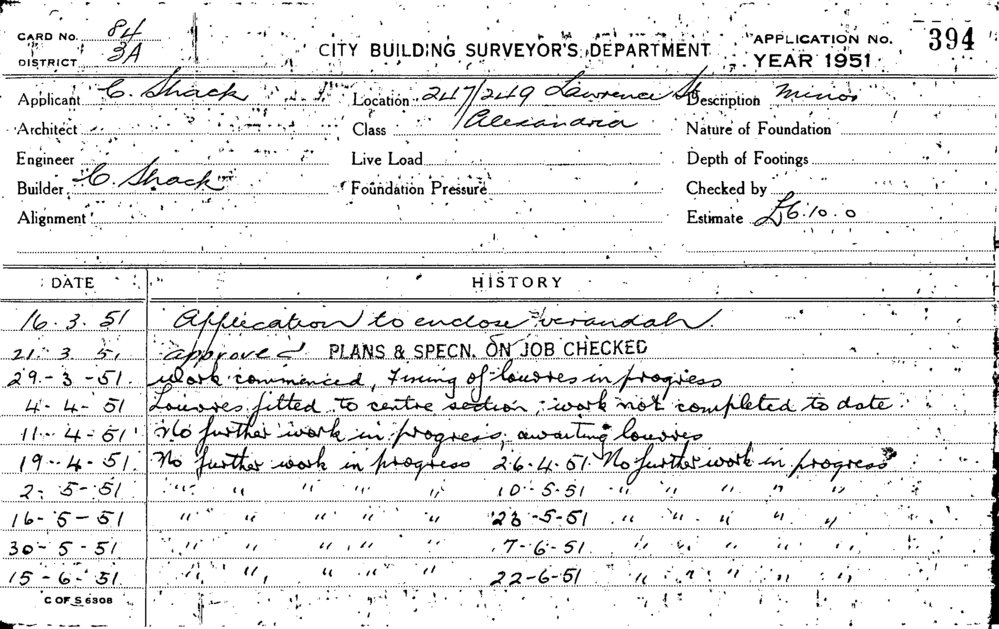 CARD No. 84
DISTRICT 3A
CITY BUILDING SURVEYOR'S DEPARTMENT
APPLICATION No. 394
YEAR 1951
Applicant C. Shack Location 247/249 Lawrence St Description Minor
Architect Class Alexandria Nature of Foundation
Engineer Live Load Depth of Footings
Builder C. Shack Foundation Pressure Checked by
Alignment Estimate £6.10.0
DATE HISTORY
16.3.51 Application to enclose verandah.
21.3.51 approved PLANS & SPECN. ON JOB CHECKED
29-3-51. Work commenced, Fixing of louvres in progress
4-4-51 Louvres fitted to centre section, work not completed to date
11-4-51 No further work in progress, awaiting louvres
19-4-51. No further work in progress 26.4.51 No further work in progress
2-5-51 " " " " " 10-5-51 " " " " "
16-5-51 " " " " " 23-5-51 " " " " "
30-5-51 " " " " " 7-6-51 " " " " "
15-6-51 " " " " " 22-6-51 " " " " "
C OF S 6308